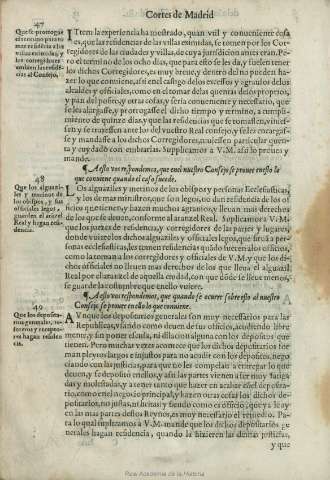 Cortes de Madrid
47
Que se prorrogue
el termino para to
mar residencia a las
villas eximidas: y
los corregidores
embien las residen
cias al Consejo.
ITem la experiencia ha mostrado, quan vtil y conueniente cosa
es, que las residencias de las villas eximidas, se tomen por los Cor-
regidores de las ciudades y villas, de cuya jurisdicion antes eran. Pe-
ro el termino de los ocho dias, que para esto se les da, y suelen tener
los dichos Corregidores, es muy breue, y dentro del no pueden ha-
zer lo que conuiene, assi en el castigo de los excessos y agrauios de los
alcaldes y oficiales, como en el tomar de las quentas de los proprios,
y pan del posito, y otras cosas, y seria conueniente y necessario, que
se les alargasse, y prorrogasse el dicho tiempo y termino, a cumpli-
miento de quinze dias, y que las residencias que se tomassen, vinies-
sen y se truxessen ante los del vuestro Real consejo, y se les encargas-
se y mandasse a los dichos Corregidores, tuuiessen particular quen-
ta y cuydado con embiarlas. Supplicamos a V. M. assi lo prouea y
mande.
¶ A esto vos respondemos, que en el nuestro Consejo se prouee en ello lo
que conuiene quando el caso sucede.
48
Que los alguaziles
y merinos de
los obispos, y sus
oficiales legos,
guarden el aranzel
Real y hagan resi-
dencia.
LOs alguaziles y merinos de los obispos y personas Ecclesiasticas,
y los de mas ministros, que son legos, no dan residencia de los of-
ficios que tienen y hazen muchos agrauios, y lleuan mas derechos
de los que se deuen, conforme al aranzel Real. Supplicamos a V. M.
que los juezes de residencia, y corregidores de las partes y lugares,
donde viuieren los dichos alguaziles y officiales legos, que siruē a per-
sonas ecclesiasticas, les tomen residencias quādo hizieren a los officios,
como la toman a los corregidores y officiales de V. M. y que los di-
chos officiales no lleuen mas derechos de los que lleua el alguazil
Real por el aranzel de aquella ciudad, con que dōde se lleue menos,
se guarde la costumbre que en ello vuiere.
¶ A esto vos respondemos, que quando se ocurre sobre esto al nuestro
Consejo se prouee en ello lo que conuiene.
49
Que los deposita-
rios generales, re-
ceptores
hagan residen
cia.
AVnque los depositarios generales son muy necessarios para las
Republicas, y siendo como deuen de sus officios, acudiendo libre
mente, y sin poner escusa, ni dilacion alguna con los depositos que
tienen. Pero muchas vezes acontece que los dichos depositarios for-
man pleytos largos e injustos para no acudir con los depositos, nego
ciando con las justicias, para que no les compelan a entregar lo que
deuen, y es forçoso en ello, y assi las partes vienen a ser muy fatiga-
das y molestadas, y a tener tanto que hazer en acabar cōel deposita-
rio, como en el negocio principal, y hazen otras cosas los dichos de-
positarios, no justas, ni licitas: y siendo como es officio, que ya le ay
en las mas partes destos Reynos, es muy necessario el remedio. Pa-
ra lo qual supplicamos a V. M. mande que los dichos depositarios ge-
nerales hagan residencia, quando la hizieren las demas justicias,
y que
Real Academia de la Historia